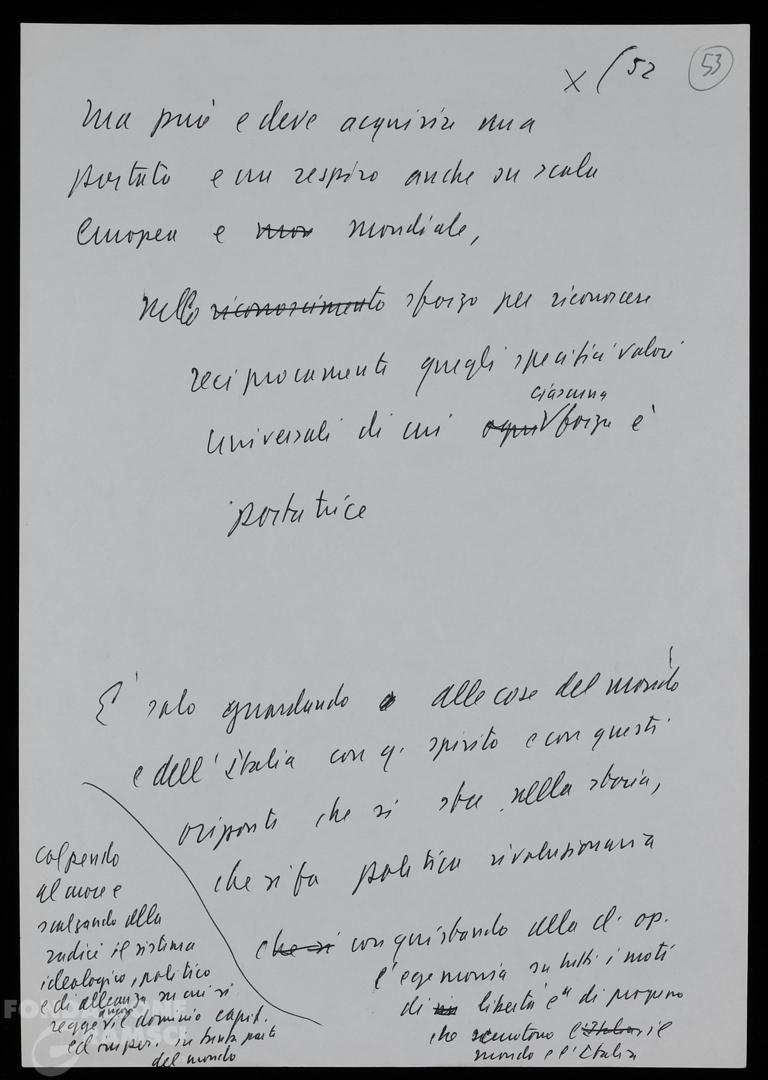 x (52 53
ma può e deve acquisire una
portata e un respiro anche su scala
europea e mov mondiale,
nello riconoscimento sforzo per riconoscere
reciprocamente quegli specifici valori
ciascuna
universali di cui ogni forza è
portatrice
E' solo guardando a alle cose del mondo
e dell'Italia con q. spirito e con questi
orizzonti che si sta nella storia,
che si fa politica rivoluzionaria
che si conquistando alla cl. op.
l'egemonia su tutti i moti
di libertà e di progresso
che scuotono l'Italia il
mondo e l'Italia
colpendo
al cuore e
scalzando alla
radice il sistema
ideologico, politico
e di alleanza su cui si
ancora
regge il dominio capit.
ed imper. in tanta parte
del mondo
FONDAZIONE
GRAMSCI